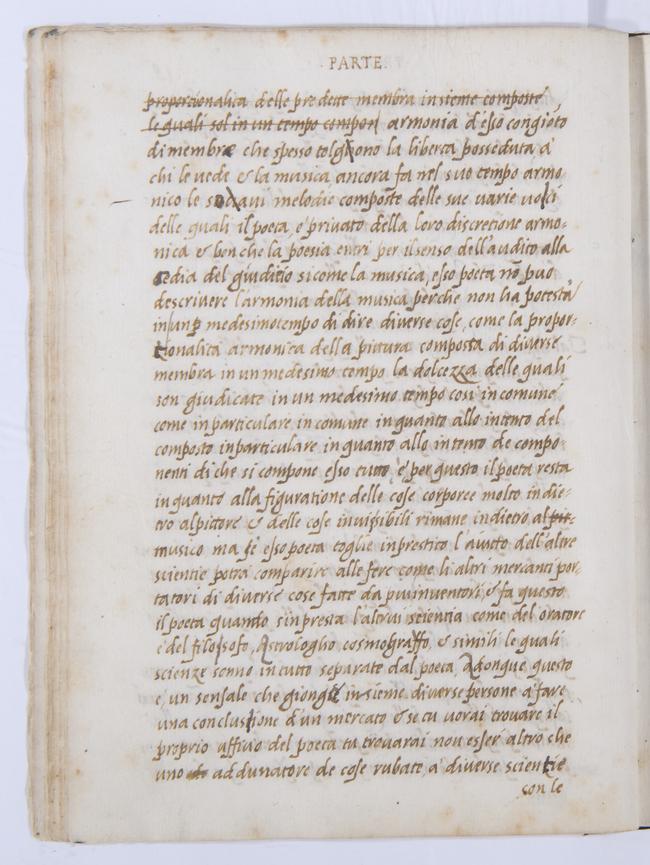 PARTE.
proportionalita delle predette membra insieme composte
le quali sol in un tempo compon armonia d'esso congioto
di membra che spesso tolgono la liberta posseduta à
chi le vede & la musica ancora fa nel suo tempo armo-
nico le soavi melodie composte delle sue varie voci
delle quali il poeta, e' privato della loro discretione armo-
nica & ben che la poesia entri per il senso dell'audito alla
sedia del giuditio sicome la musica, esso poeta nō può
descrivere l'armonia della musica perche non ha potestà
in un medesimo tempo di dire diverse cose, come la propor-
tionalita armonica della pittura composta di diverse
membra in un medesimo tempo la dolcezza delle quali
son giudicate in un medesimo tempo cosi in comune
come in particulare in comune in quanto allo intento del
composto in particulare in quanto allo intento de compo-
nenti di che si compone esso tutto, e' per questo il poeta resta
in quanto alla figuratione delle cose corporee molto indie-
tro al pittore & delle cose invisibili rimane indietro al pit-
musico ma se esso poeta toglie in prestito l'aiuto dell'altre
scientie potra comparire alle fere come li altri mercanti por-
tatori di diverse cose fatte da piu inventori, & fa questo
il poeta quando s'inpresta l'altrui scientia come del oratore
e del filosofo, Astrologho cosmografo, & simili le quali
scienze sonno in tutto separate dal poeta, Adonque questo
e' un sensale che giongie insieme diverse persone a fare
una conclusione d'un mercato & se tu vorai trovare il
proprio uffitio del poeta tu trovarai non esser altro che
uno de addunatore de cose rubate, a' diverse scientie
con le